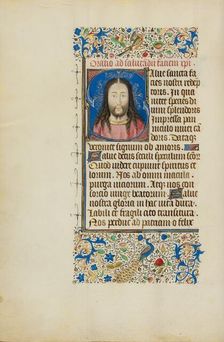 Oratio ad salutandū faciem xpi
Salue sancta fa
cies nostri redēp
toris. In qua
nitet species di
uini splendoris
Impressa pan
niculo niuei can
doris. Dataq
veronice signum ob amorē.
Salue decus seculi speculum sanctor
Quod videre cupiunt spiritus ce
lorum. Nos ab omni macula
purga viciorum. Atq nos con
sorcio iunge beatorum. Salue
nostra gloria in hac vita dura.
Labili et fragili cito transitura.
Nos perduc ad patriam o felix